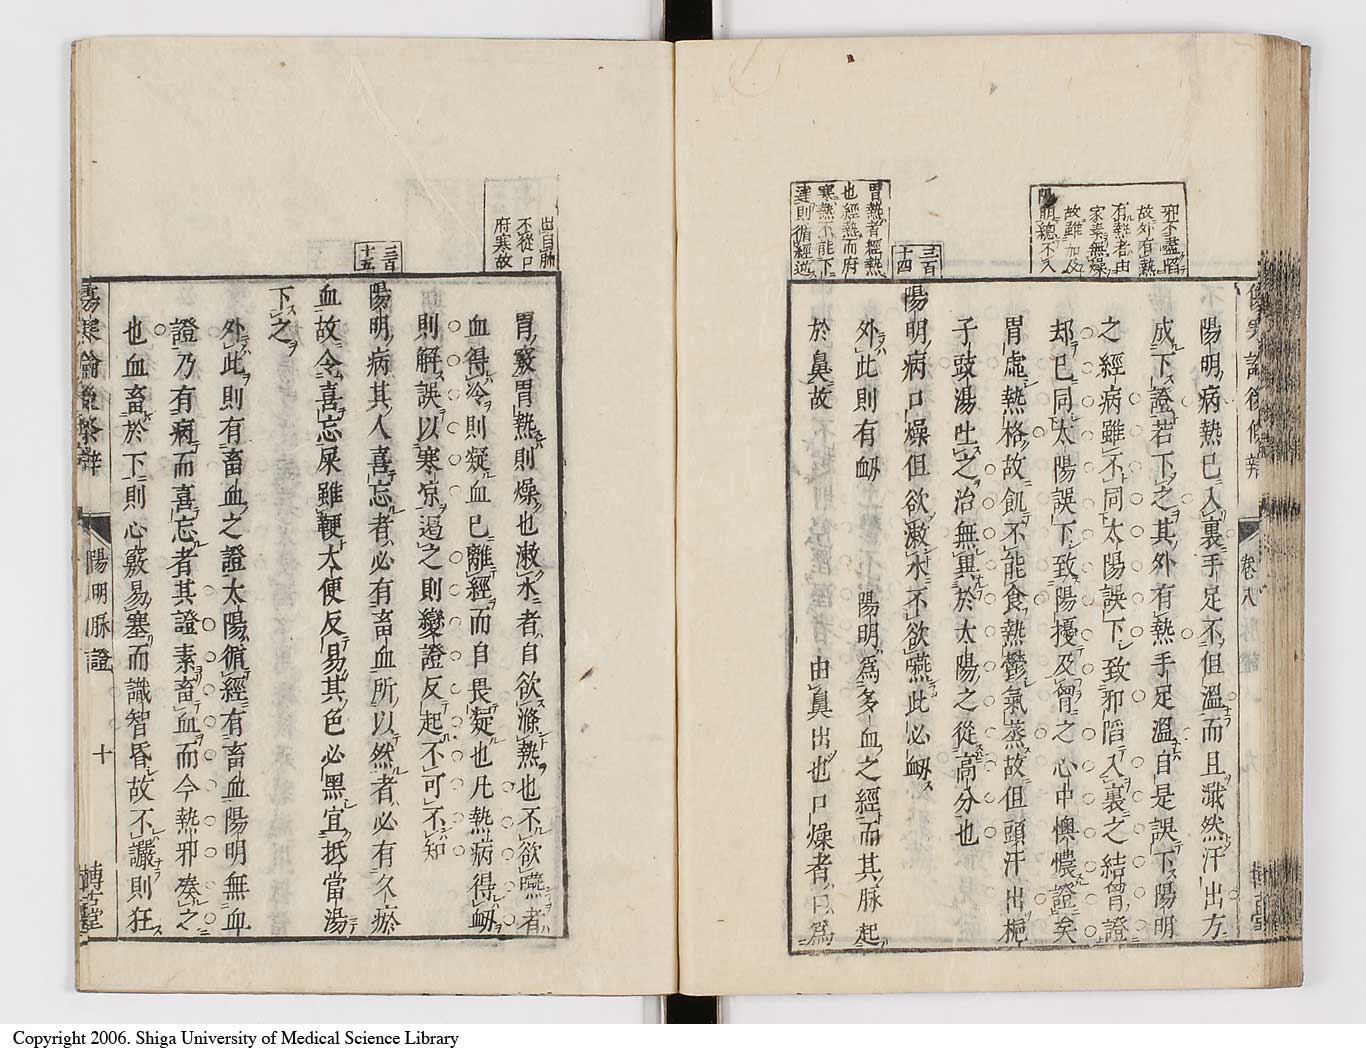 邪不盡陷
故外有熱
有熱者由
家素無燥
故雖加
陽明總不入
三百
十四
胃熱者經熱
也經熱而府
寒熱不能下
達則循經逆
卷八
陽明病熱已入裏手足不但溫而且濈然汗出方
成下證若下之其外有熱手足溫自是誤下陽明
之經病雖不同太陽誤下致邪陷入裏之結曾證
却已同太陽誤下致陽擾及之心中懊憹證矣
胃虛熱格故飢不能食熱鬱氣蒸故但頭汗出梔
子豉湯吐之治無異於太陽之從高分也
陽明病口燥但欲漱水不欲嚥此必衂
外此則有衂 陽明爲多血之經而其脉起
於鼻故 由鼻出也口燥者口爲
出自肺
不從口
府寒故
三百
十五
胃竅胃熱則燥也漱水者自欲滌熱也不欲嚥者
血得冷則凝血已離經而自畏凝也凡熱病得衂
則解誤以寒凉遏之則變證反起不可不知
陽明病其人喜忘者必有畜血所以然者必有久瘀
血故令喜忘屎雖鞕大便反易其色必黑宜抵當湯
下之
外此則有畜血之證太陽循經有畜血陽明無血
證乃有病而喜忘者其證素畜血而今熱邪湊之
也血畜於下則心竅易塞而識智昏故不讝則狂
傷寒論後條辨
陽明脉證
十
博古堂
Copyright 2006. Shiga University of Medical Science Library